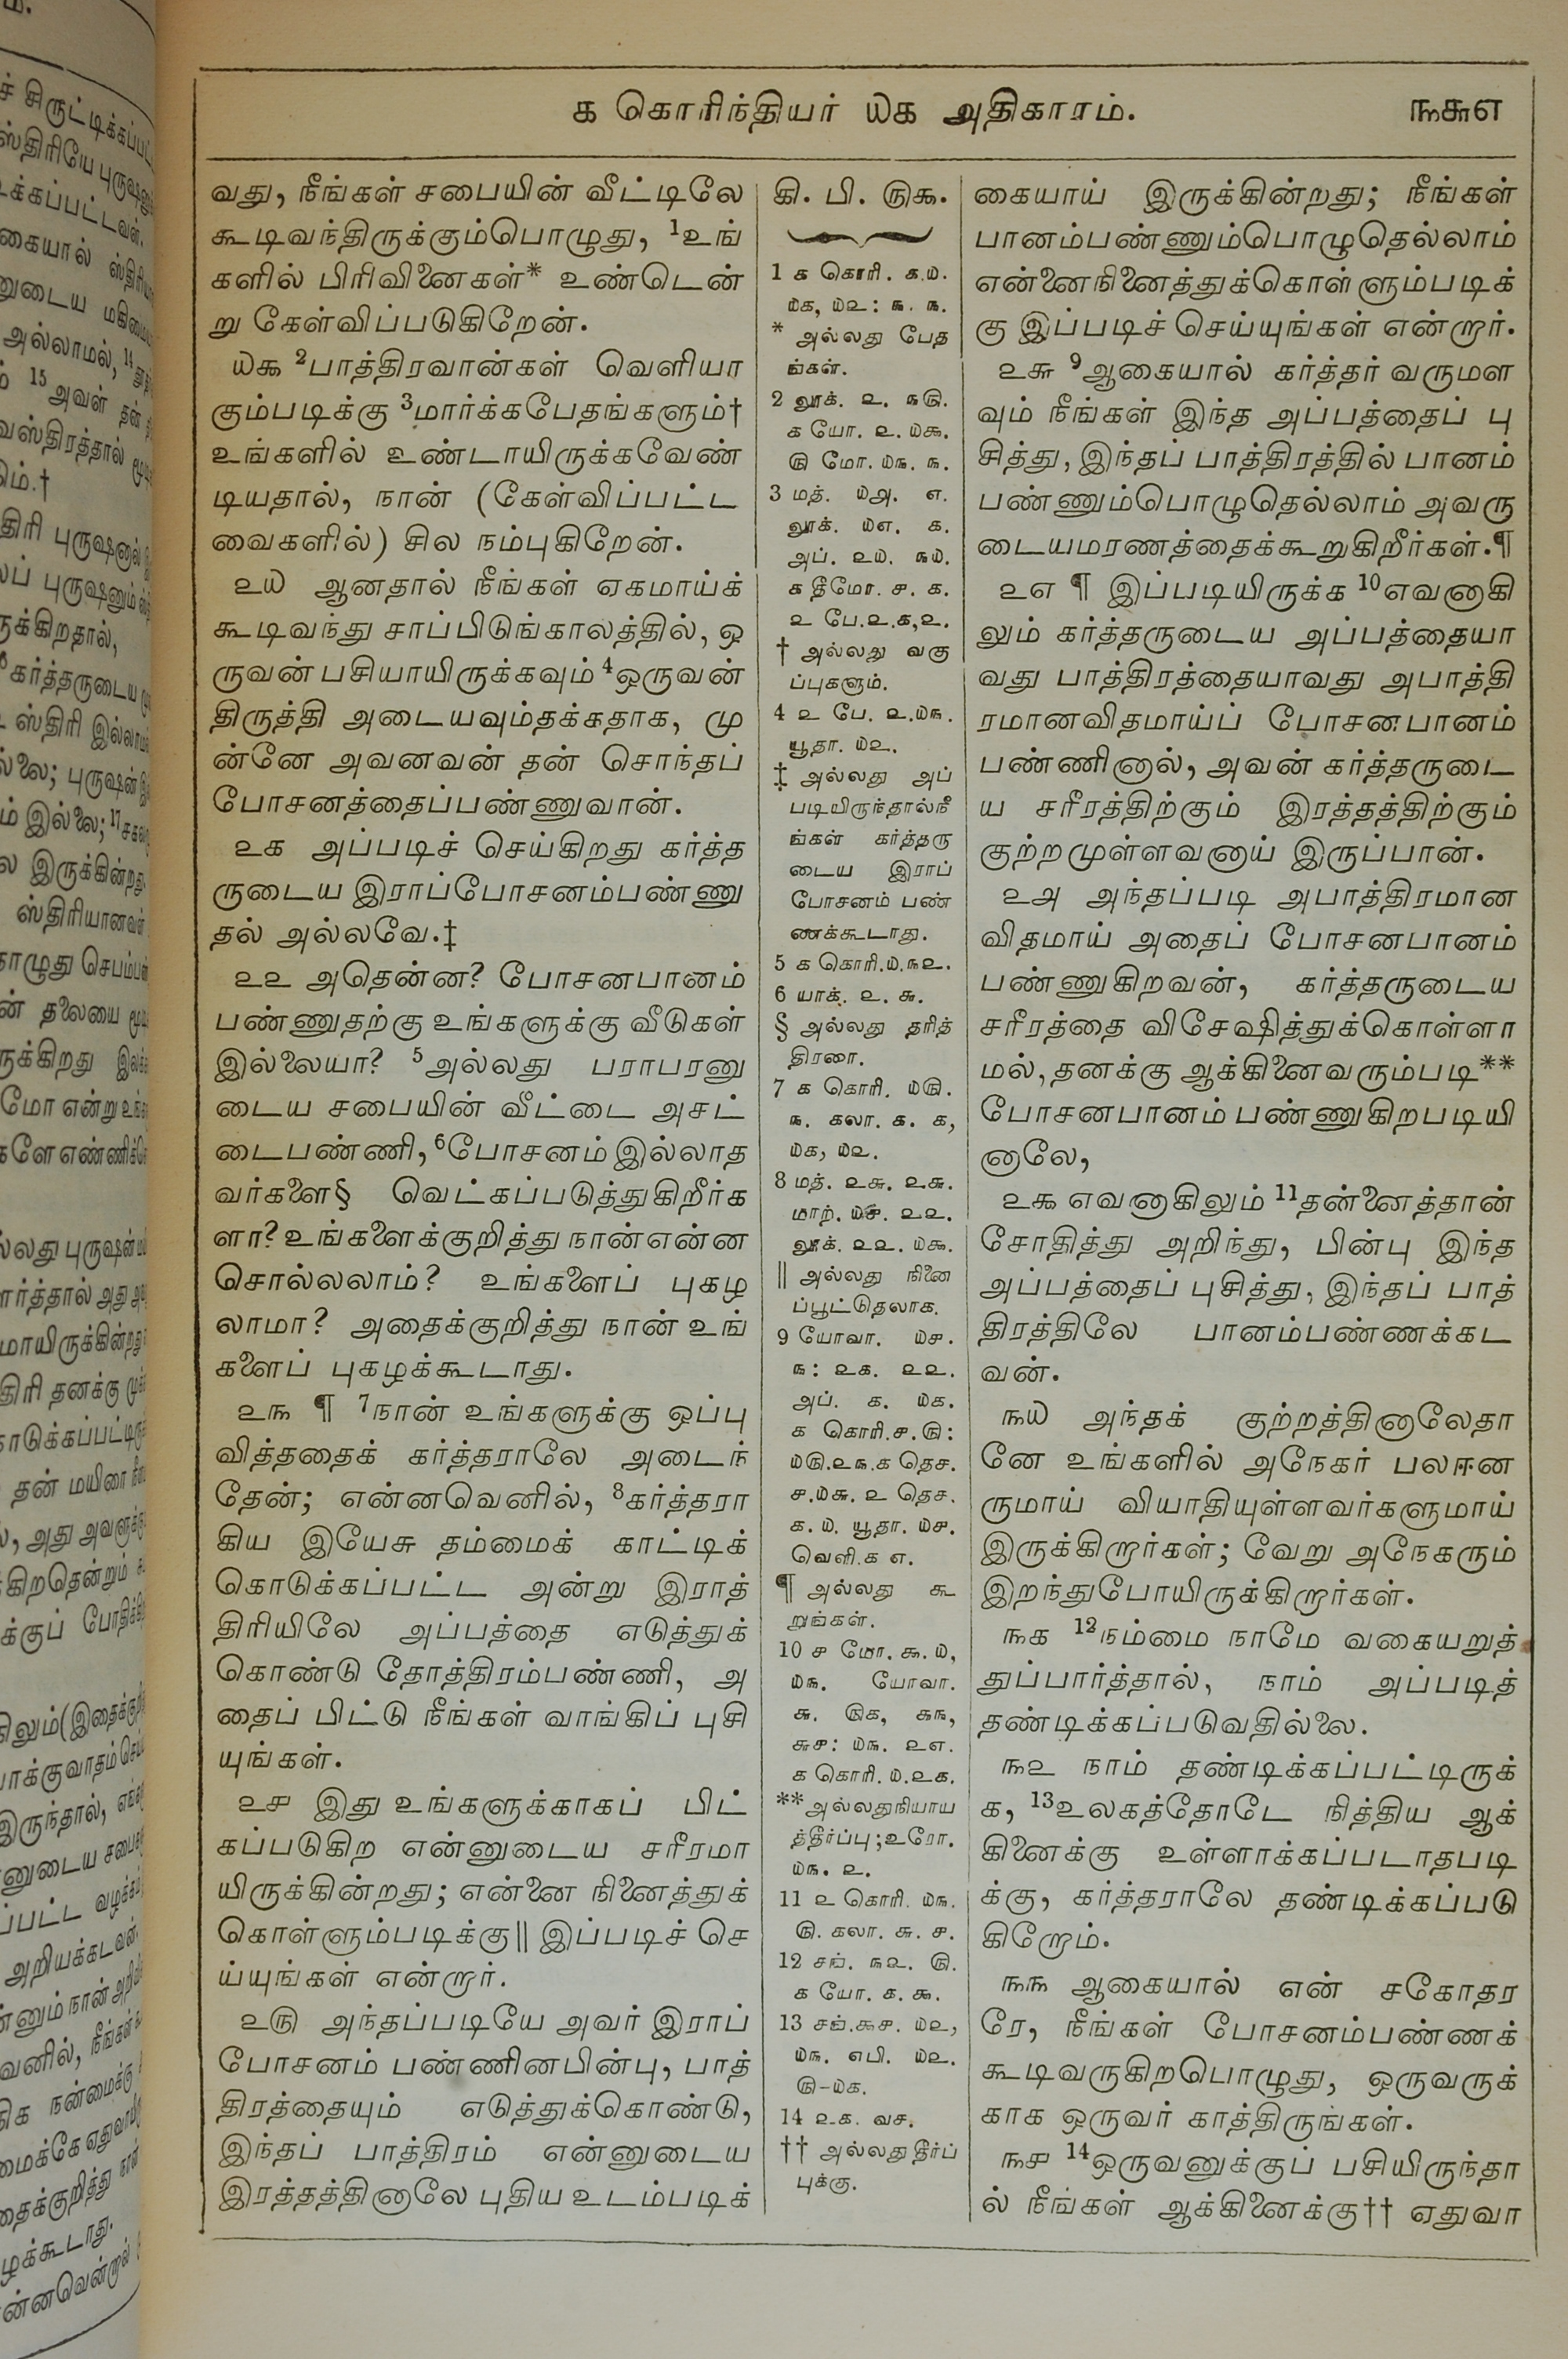 ௧ கொரிந்தியர் ௰௧ அதிகாரம்.
௩௬௭
வது, நீங்கள் சபையின் வீட்டிலே
கூடிவந்திருக்கும்பொழுது, ¹உங்
களில் பிரிவினைகள்* உண்டென்
று கேள்விப்படுகிறேன்.
௰௯ ²பாத்திரவான்கள் வெளியா
கும்படிக்கு ³மார்க்கபேதங்களும்†
உங்களில் உண்டாயிருக்கவேண்
டியதால், நான் (கேள்விப்பட்ட
வைகளில்) சில நம்புகிறேன்.
௨௰ ஆனதால் நீங்கள் ஏகமாய்க்
கூடிவந்து சாப்பிடுங்காலத்தில், ஒ
ருவன் பசியாயிருக்கவும் ⁴ஒருவன்
திருத்தி அடையவும்தக்கதாக, மு
ன்னே அவனவன் தன் சொந்தப்
போசனத்தைப்பண்ணுவான்.
௨௧ அப்படிச் செய்கிறது கர்த்த
ருடைய இராப்போசனம்பண்ணு
தல் அல்லவே.‡
௨௨ அதென்ன? போசனபானம்
பண்ணுதற்கு உங்களுக்கு வீடுகள்
இல்லையா? ⁵அல்லது பராபரனு
டைய சபையின் வீட்டை அசட்
டைபண்ணி, ⁶போசனம் இல்லாத
வர்களை§ வெட்கப்படுத்துகிறீர்க
ளா? உங்களைக்குறித்து நான் என்ன
சொல்லலாம்? உங்களைப் புகழ
லாமா? அதைக்குறித்து நான் உங்
களைப் புகழக்கூடாது.
௨௩ ¶ ⁷நான் உங்களுக்கு ஒப்பு
வித்ததைக் கர்த்தராலே அடைந்
தேன்; என்னவெனில், ⁸கர்த்தரா
கிய இயேசு தம்மைக் காட்டிக்
கொடுக்கப்பட்ட அன்று இராத்
திரியிலே அப்பத்தை எடுத்துக்
கொண்டு தோத்திரம்பண்ணி, அ
தைப் பிட்டு நீங்கள் வாங்கிப் புசி
யுங்கள்.
௨௪ இது உங்களுக்காகப் பிட்
கப்படுகிற என்னுடைய சரீரமா
யிருக்கின்றது; என்னை நினைத்துக்
கொள்ளும்படிக்கு|| இப்படிச் செ
ய்யுங்கள் என்றார்.
௨௫ அந்தப்படியே அவர் இராப்
போசனம் பண்ணினபின்பு, பாத்
திரத்தையும் எடுத்துக்கொண்டு,
இந்தப் பாத்திரம் என்னுடைய
இரத்தத்தினாலே புதிய உடம்படிக்
கி. பி. ௫௯.
1 ௧ கொரி. ௧.௰.
௰௧, ௰௨: ௩. ௩.
* அல்லது பேத
ங்கள்.
2 லூக். ௨. ௩௫.
௧ யோ. ௨. ௰௯.
௫ மோ. ௰௩. ௩.
3 மத். ௰௮. ௭.
லூக். ௰௭. ௧.
அப். ௨௰. ௩௰.
௧ தீமோ. ௪. ௧.
௨ பே.௨.௧,௨.
† அல்லது வகு
ப்புகளும்.
4 ௨ பே. ௨.௰௩.
யூதா. ௰௨.
‡ அல்லது அப்
படியிருந்தால்நீ
ங்கள் கர்த்தரு
டைய இராப்
போசனம் பண்
ணக்கூடாது.
5 ௧ கொரி.௰.௩௨.
6 யாக். ௨. ௬.
§ அல்லது தரித்
திரரை.
7 ௧ கொரி. ௰௫.
௩. கலா. ௧. ௧,
௰௧, ௰௨.
8 மத். ௨௬. ௨௬.
மாற். ௰௪. ௨௨.
லூக். ௨௨. ௰௯.
|| அல்லது நினை
ப்பூட்டுதலாக.
9 யோவா. ௰௪.
௩: ௨௧. ௨௨.
அப். ௧. ௰௧.
௧ கொரி.௪.௫:
௰௫.௨௩.௧ தெச.
௪.௰௬. ௨ தெச.
௧. ௰. யூதா. ௰௪.
வெளி.௧ ௭.
¶ அல்லது கூ
றுங்கள்.
10 ௪ மோ. ௯. ௰,
௰௩. யோவா.
௬. ௫௧, ௬௩,
௬௪: ௰௩. ௨௭.
௧ கொரி. ௰.௨௧.
**அல்லதுநியாய
த்தீர்ப்பு;உரோ.
௰௩. ௨.
11 ௨ கொரி. ௰௩.
௫. கலா. ௬. ௪.
12 சங். ௩௨. ௫.
௧ யோ. ௧. ௯.
13 சங்.௯௪. ௰௨,
௰௩. எபி. ௰௨.
௫-௰௧.
14 ௨௧. வச.
†† அல்லது தீர்ப்
புக்கு.
கையாய் இருக்கின்றது; நீங்கள்
பானம்பண்ணும்பொழுதெல்லாம்
என்னைநினைத்துக்கொள்ளும்படிக்
கு இப்படிச் செய்யுங்கள் என்றார்.
௨௬ ⁹ஆகையால் கர்த்தர் வருமள
வும் நீங்கள் இந்த அப்பத்தைப் பு
சித்து, இந்தப் பாத்திரத்தில் பானம்
பண்ணும்பொழுதெல்லாம் அவரு
டையமரணத்தைக்கூறுகிறீர்கள்.¶
௨௭ ¶ இப்படியிருக்க ¹⁰எவனாகி
லும் கர்த்தருடைய அப்பத்தையா
வது பாத்திரத்தையாவது அபாத்தி
ரமானவிதமாய்ப் போசனபானம்
பண்ணினால், அவன் கர்த்தருடை
ய சரீரத்திற்கும் இரத்தத்திற்கும்
குற்றமுள்ளவனாய் இருப்பான்.
௨௮ அந்தப்படி அபாத்திரமான
விதமாய் அதைப் போசனபானம்
பண்ணுகிறவன், கர்த்தருடைய
சரீரத்தை விசேஷித்துக்கொள்ளா
மல், தனக்கு ஆக்கினைவரும்படி**
போசனபானம் பண்ணுகிறபடியி
னாலே,
௨௯ எவனாகிலும் ¹¹தன்னைத்தான்
சோதித்து அறிந்து, பின்பு இந்த
அப்பத்தைப் புசித்து, இந்தப் பாத்
திரத்திலே பானம்பண்ணக்கட
வன்.
௩௰ அந்தக் குற்றத்தினாலேதா
னே உங்களில் அநேகர் பலஈன
ருமாய் வியாதியுள்ளவர்களுமாய்
இருக்கிறார்கள்; வேறு அநேகரும்
இறந்துபோயிருக்கிறார்கள்.
௩௧ ¹²நம்மை நாமே வகையறுத்
துப்பார்த்தால், நாம் அப்படித்
தண்டிக்கப்படுவதில்லை.
௩௨ நாம் தண்டிக்கப்பட்டிருக்
க, ¹³உலகத்தோடே நித்திய ஆக்
கினைக்கு உள்ளாக்கப்படாதபடி
க்கு, கர்த்தராலே தண்டிக்கப்படு
கிறோம்.
௩௩ ஆகையால் என் சகோதர
ரே, நீங்கள் போசனம்பண்ணக்
கூடிவருகிறபொழுது, ஒருவருக்
காக ஒருவர் காத்திருங்கள்.
௩௪ ¹⁴ஒருவனுக்குப் பசியிருந்தா
ல் நீங்கள் ஆக்கினைக்கு†† ஏதுவா